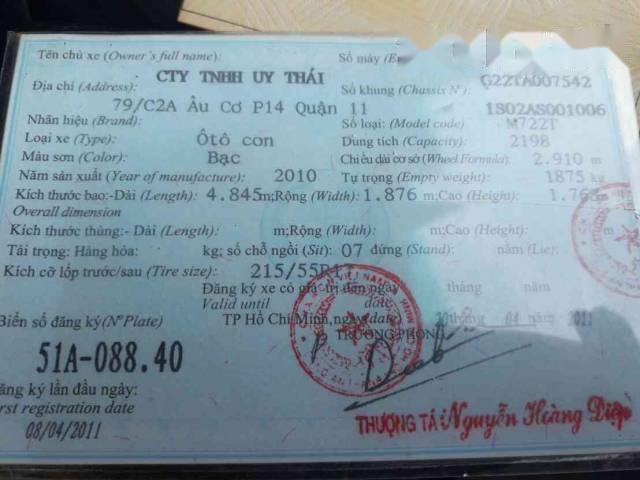 Tên chủ xe (Owner's full name): Số máy
CTY TNHH UY THÁI G22TA007542
Địa chỉ (Address): Số khung (Chassis Nº):
79/C2A Âu Cơ P14 Quận 11 1S02AS001006
Nhãn hiệu (Brand): Số loại: (Model code) M722T
Loại xe (Type): Ôtô con Dung tích (Capacity): 2198
Màu sơn (Color): Bạc Chiều dài cơ sở (Wheel Formula): 2.910 m
Năm sản xuất (Year of manufacture): 2010 Tự trọng (Empty weight): 1875 kg
Kích thước bao:-Dài (Length): 4.845m;Rộng (Width): 1.876 m;Cao (Height):
Overall dimension
Kích thước thùng:- Dài (Length): m;Rộng (Width): m;Cao (Height):
Tải trọng: Hàng hóa: kg; số chỗ ngồi (Sit): 07 đứng (Stand): năm (Lie):
Kích cỡ lốp trước/sau (Tire size):
Đăng ký xe có giá trị đến ngày tháng năm
Valid until date
Biển số đăng ký(NºPlate) TP Hồ Chí Minh,ngày(date) 04 năm 2011
TRƯỞNG PHÒNG
51A-088.40
ăng ký lần đầu ngày:
rst registration date
08/04/2011
THƯỢNG TÁ: Nguyễn Hoàng Diệp